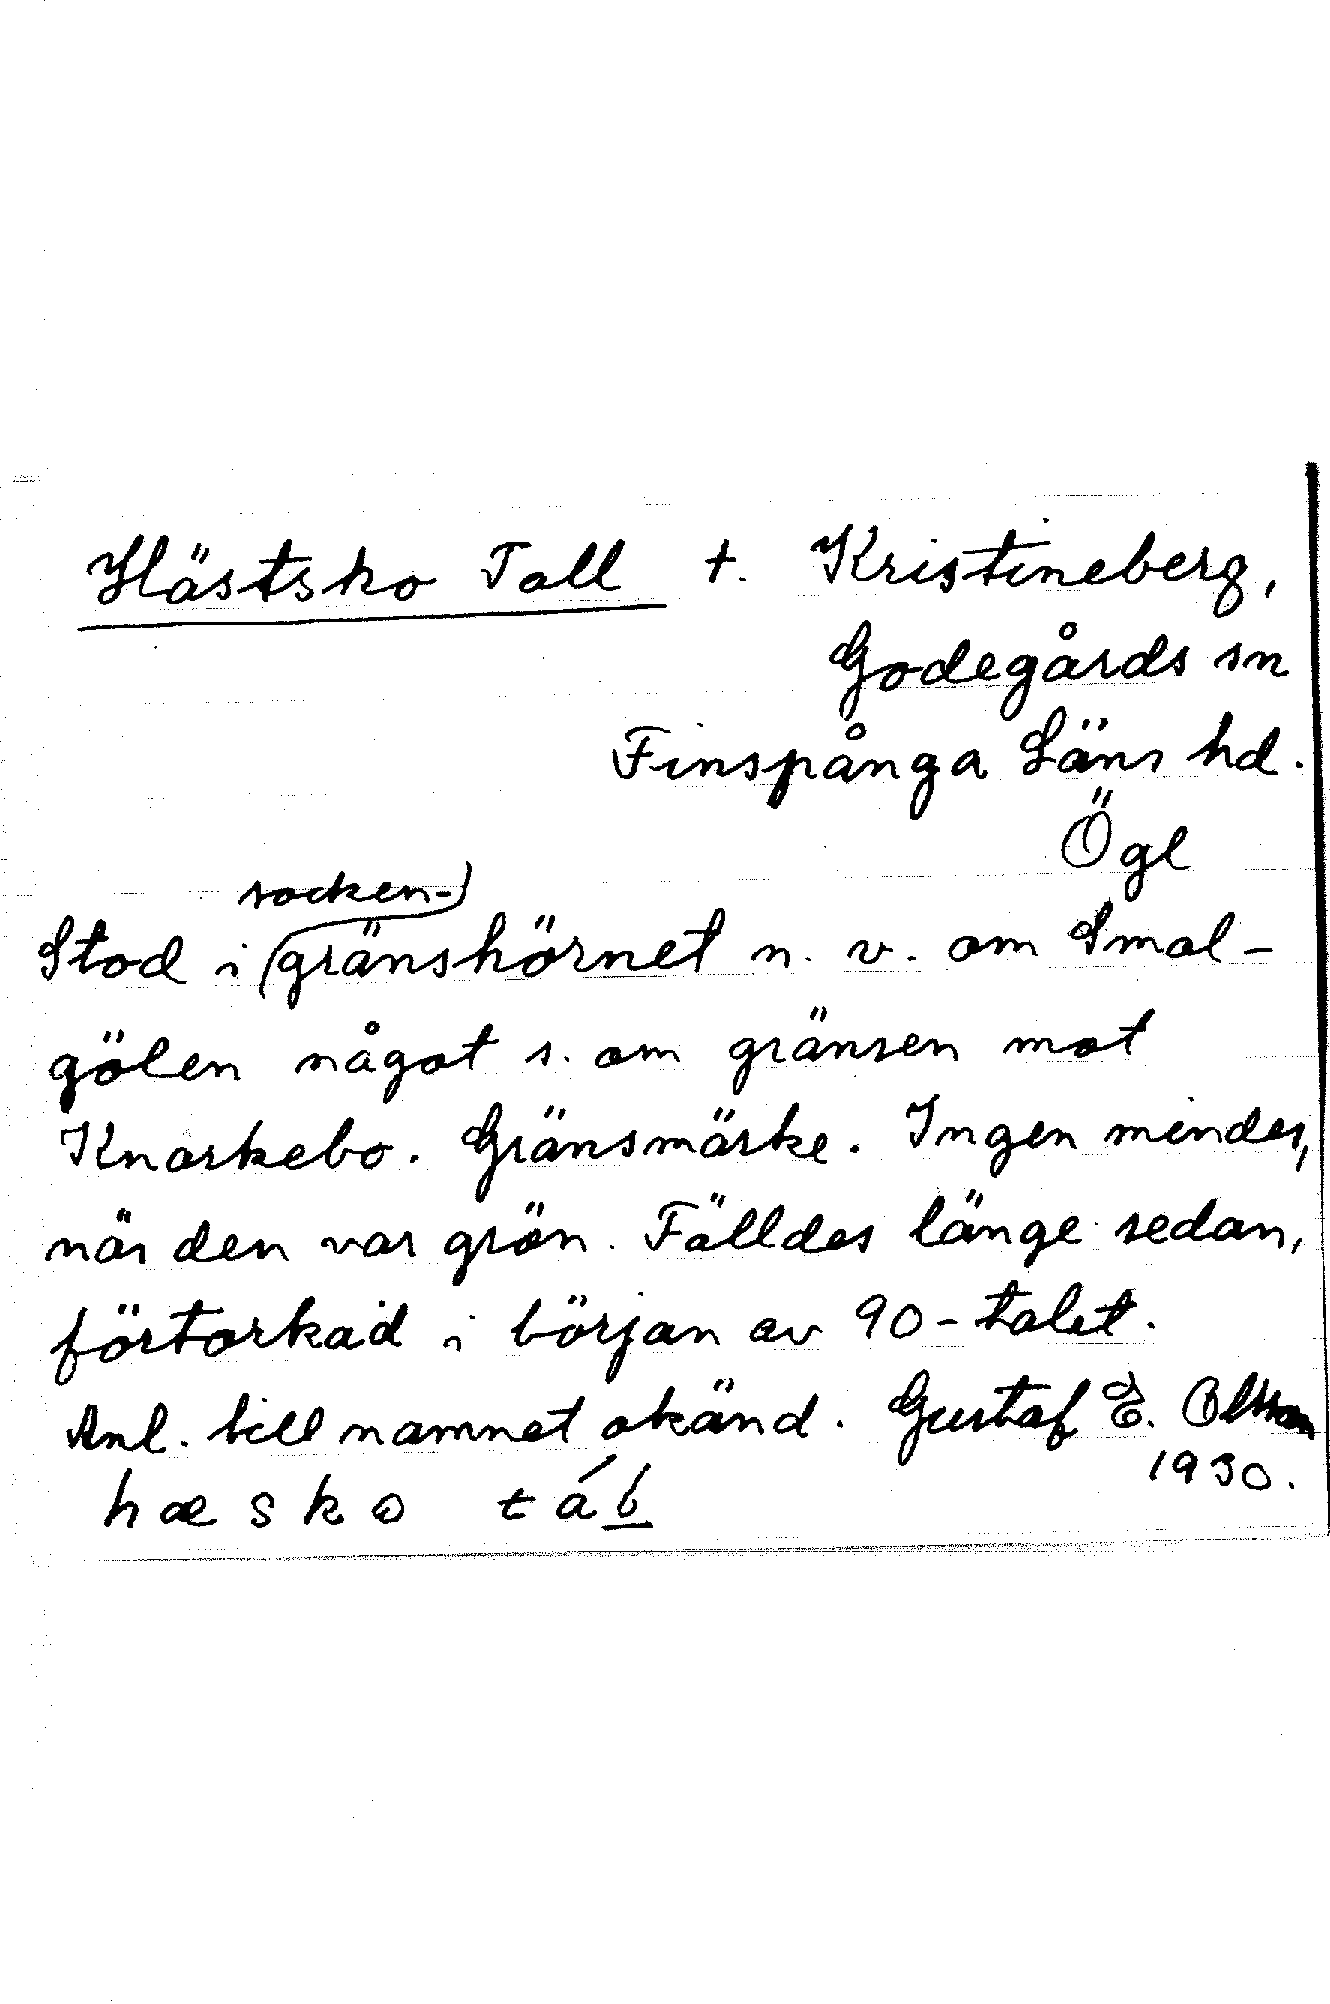 Hästsko Tall t. Kristineberg,
Godegårds sn
Finspånga Läns hd.
Ögl
socken-
Stod i gränshörnet n. v. om Smal-
gölen något s. om gränsen mot
Knarkebo. Gränsmärke. Ingen mindes,
när den var grön. Fälldes länge sedan,
förtorkad i början av 90-talet.
Anl. till namnet okänd. Gustaf E. Olsson
1930.
hæsko tá